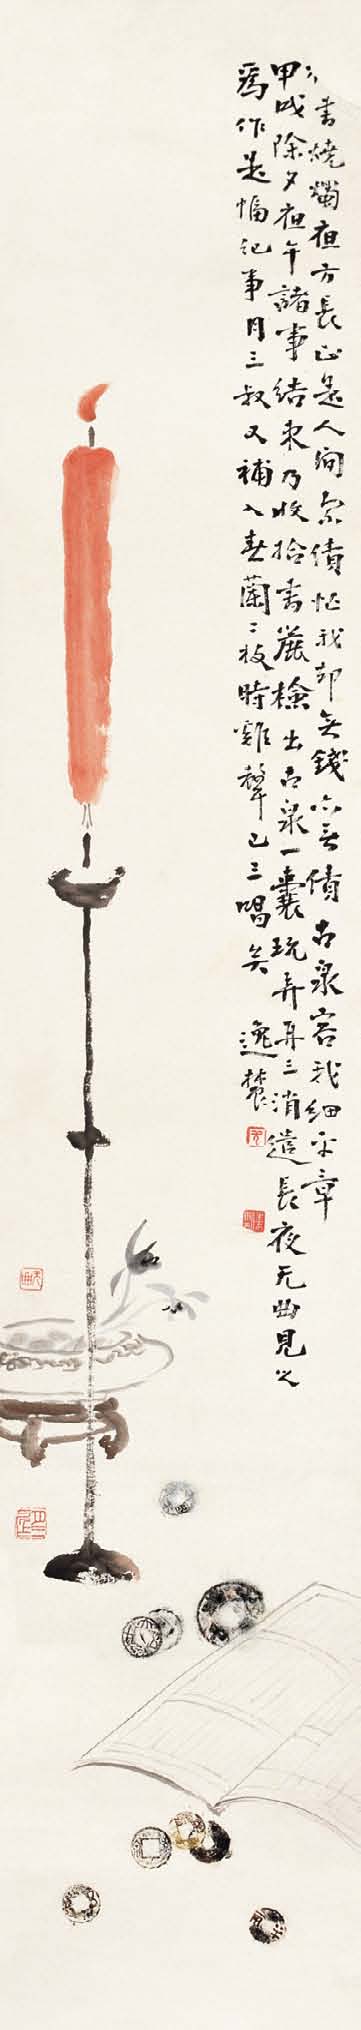 書燒燭夜方長正是人間索債忙我卻無錢亦無債古泉容我細平章
甲戌除夕夜午諸事結束乃收拾書簏檢出古泉一囊玩弄再三消遣長夜无曲見之
為作是幅紀事月三叔又補入春蘭二枝時雞聲已三唱矣 逸